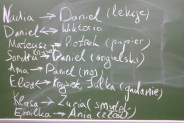 Nadia → Daniel (lekcje)
Daniel ↔ Wiktoria
Mateusz → Piotrek (papier)
Sandra → Daniel (angielski)
Ania → Daniel (nos)
Eliza → Julka (gadanie)
Klasa → Zuzia
Emilka → Ania